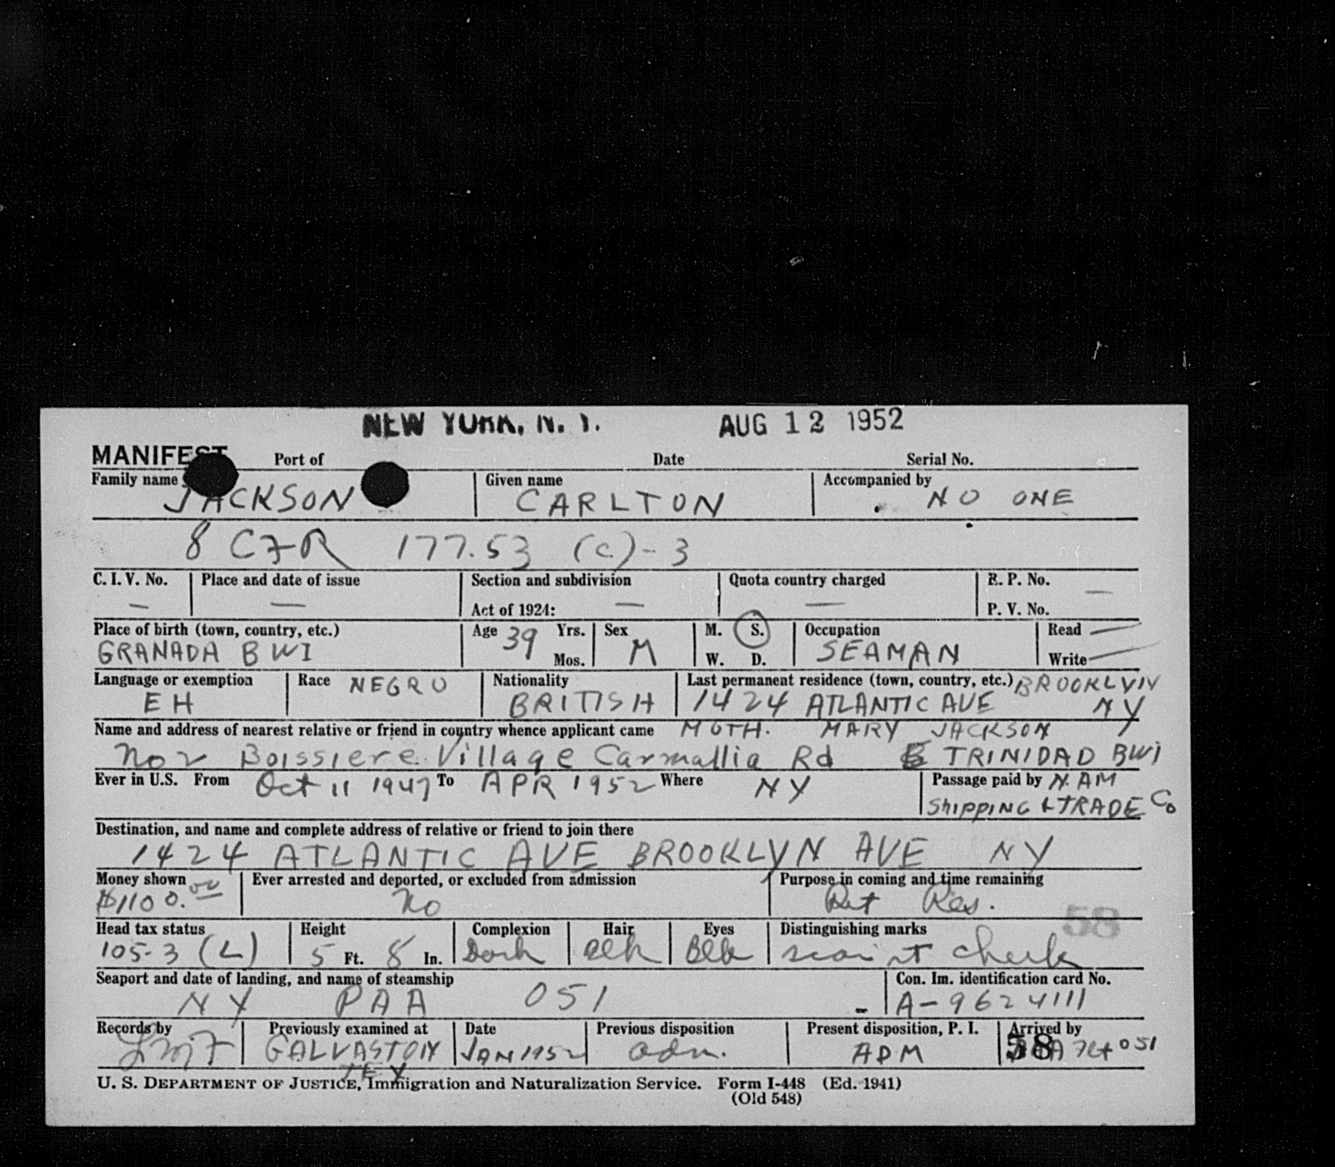 NEW YORK, N. Y. AUG 12 1952
MANIFEST Port of Date Serial No.
Family name Given name Accompanied by
JACKSON CARLTON NO ONE
8 CFR 177.53 (c)-3
C. I. V. No. Place and date of issue Section and subdivision Quota country charged R. P. No.
— — Act of 1924: — — P. V. No. —
Place of birth (town, country, etc.) Age 39 Yrs. Sex M. S. Occupation Read —
GRANADA BWI Mos. M W. D. SEAMAN Write —
Language or exemption Race NEGRO Nationality Last permanent residence (town, country, etc.) BROOKLYN
EH BRITISH 1424 ATLANTIC AVE NY
Name and address of nearest relative or friend in country whence applicant came MOTH. MARY JACKSON
No 2 Boissiere Village Carmallia Rd TRINIDAD BWI
Ever in U.S. From Oct 11 1947 To APR 1952 Where NY Passage paid by N. AM
SHIPPING & TRADE Co
Destination, and name and complete address of relative or friend to join there
1424 ATLANTIC AVE BROOKLYN AVE NY
Money shown Ever arrested and deported, or excluded from admission Purpose in coming and time remaining
$1100.00 No Ret Res.
58
Head tax status Height Complexion Hair Eyes Distinguishing marks
105-3 (L) 5 Ft. 8 In. Dark Blk Blk scar  cheek
Seaport and date of landing, and name of steamship Con. Im. identification card No.
NY PAA 051 A-9624111
Records by Previously examined at Date Previous disposition Present disposition, P. I. Arrived by
GALVASTON JAN 1952 adm. ADM 58 051
TEX
U. S. DEPARTMENT OF JUSTICE, Immigration and Naturalization Service. Form I-448 (Ed. 1941)
(Old 548)